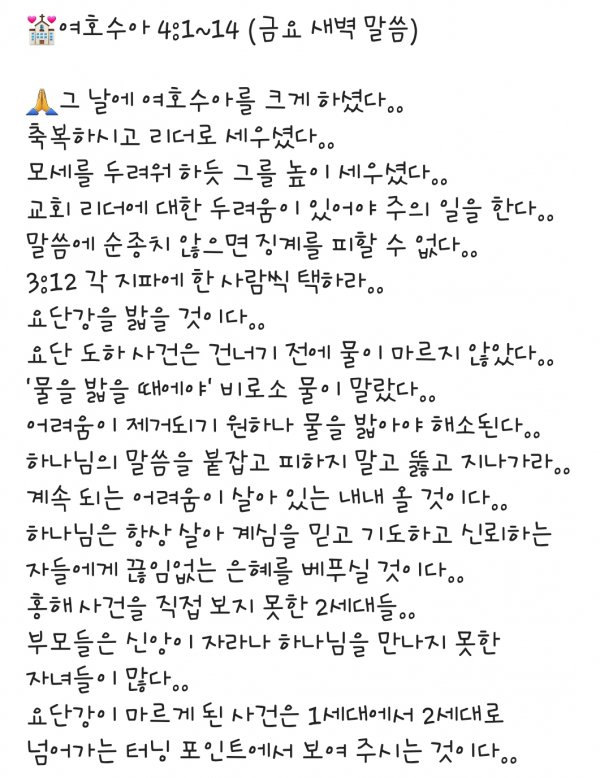 💒여호수아 4:1~14 (금요 새벽 말씀)
🙏그 날에 여호수아를 크게 하셨다..
축복하시고 리더로 세우셨다..
모세를 두려워 하듯 그를 높이 세우셨다..
교회 리더에 대한 두려움이 있어야 주의 일을 한다..
말씀에 순종치 않으면 징계를 피할 수 없다..
3:12 각 지파에 한 사람씩 택하라..
요단강을 밟을 것이다..
요단 도하 사건은 건너기 전에 물이 마르지 않았다..
'물을 밟을 때에야' 비로소 물이 말랐다..
어려움이 제거되기 원하나 물을 밟아야 해소된다..
하나님의 말씀을 붙잡고 피하지 말고 뚫고 지나가라..
계속 되는 어려움이 살아 있는 내내 올 것이다..
하나님은 항상 살아 계심을 믿고 기도하고 신뢰하는
자들에게 끊임없는 은혜를 베푸실 것이다..
홍해 사건을 직접 보지 못한 2세대들..
부모들은 신앙이 자라나 하나님을 만나지 못한
자녀들이 많다..
요단강이 마르게 된 사건은 1세대에서 2세대로
넘어가는 터닝 포인트에서 보여 주시는 것이다..